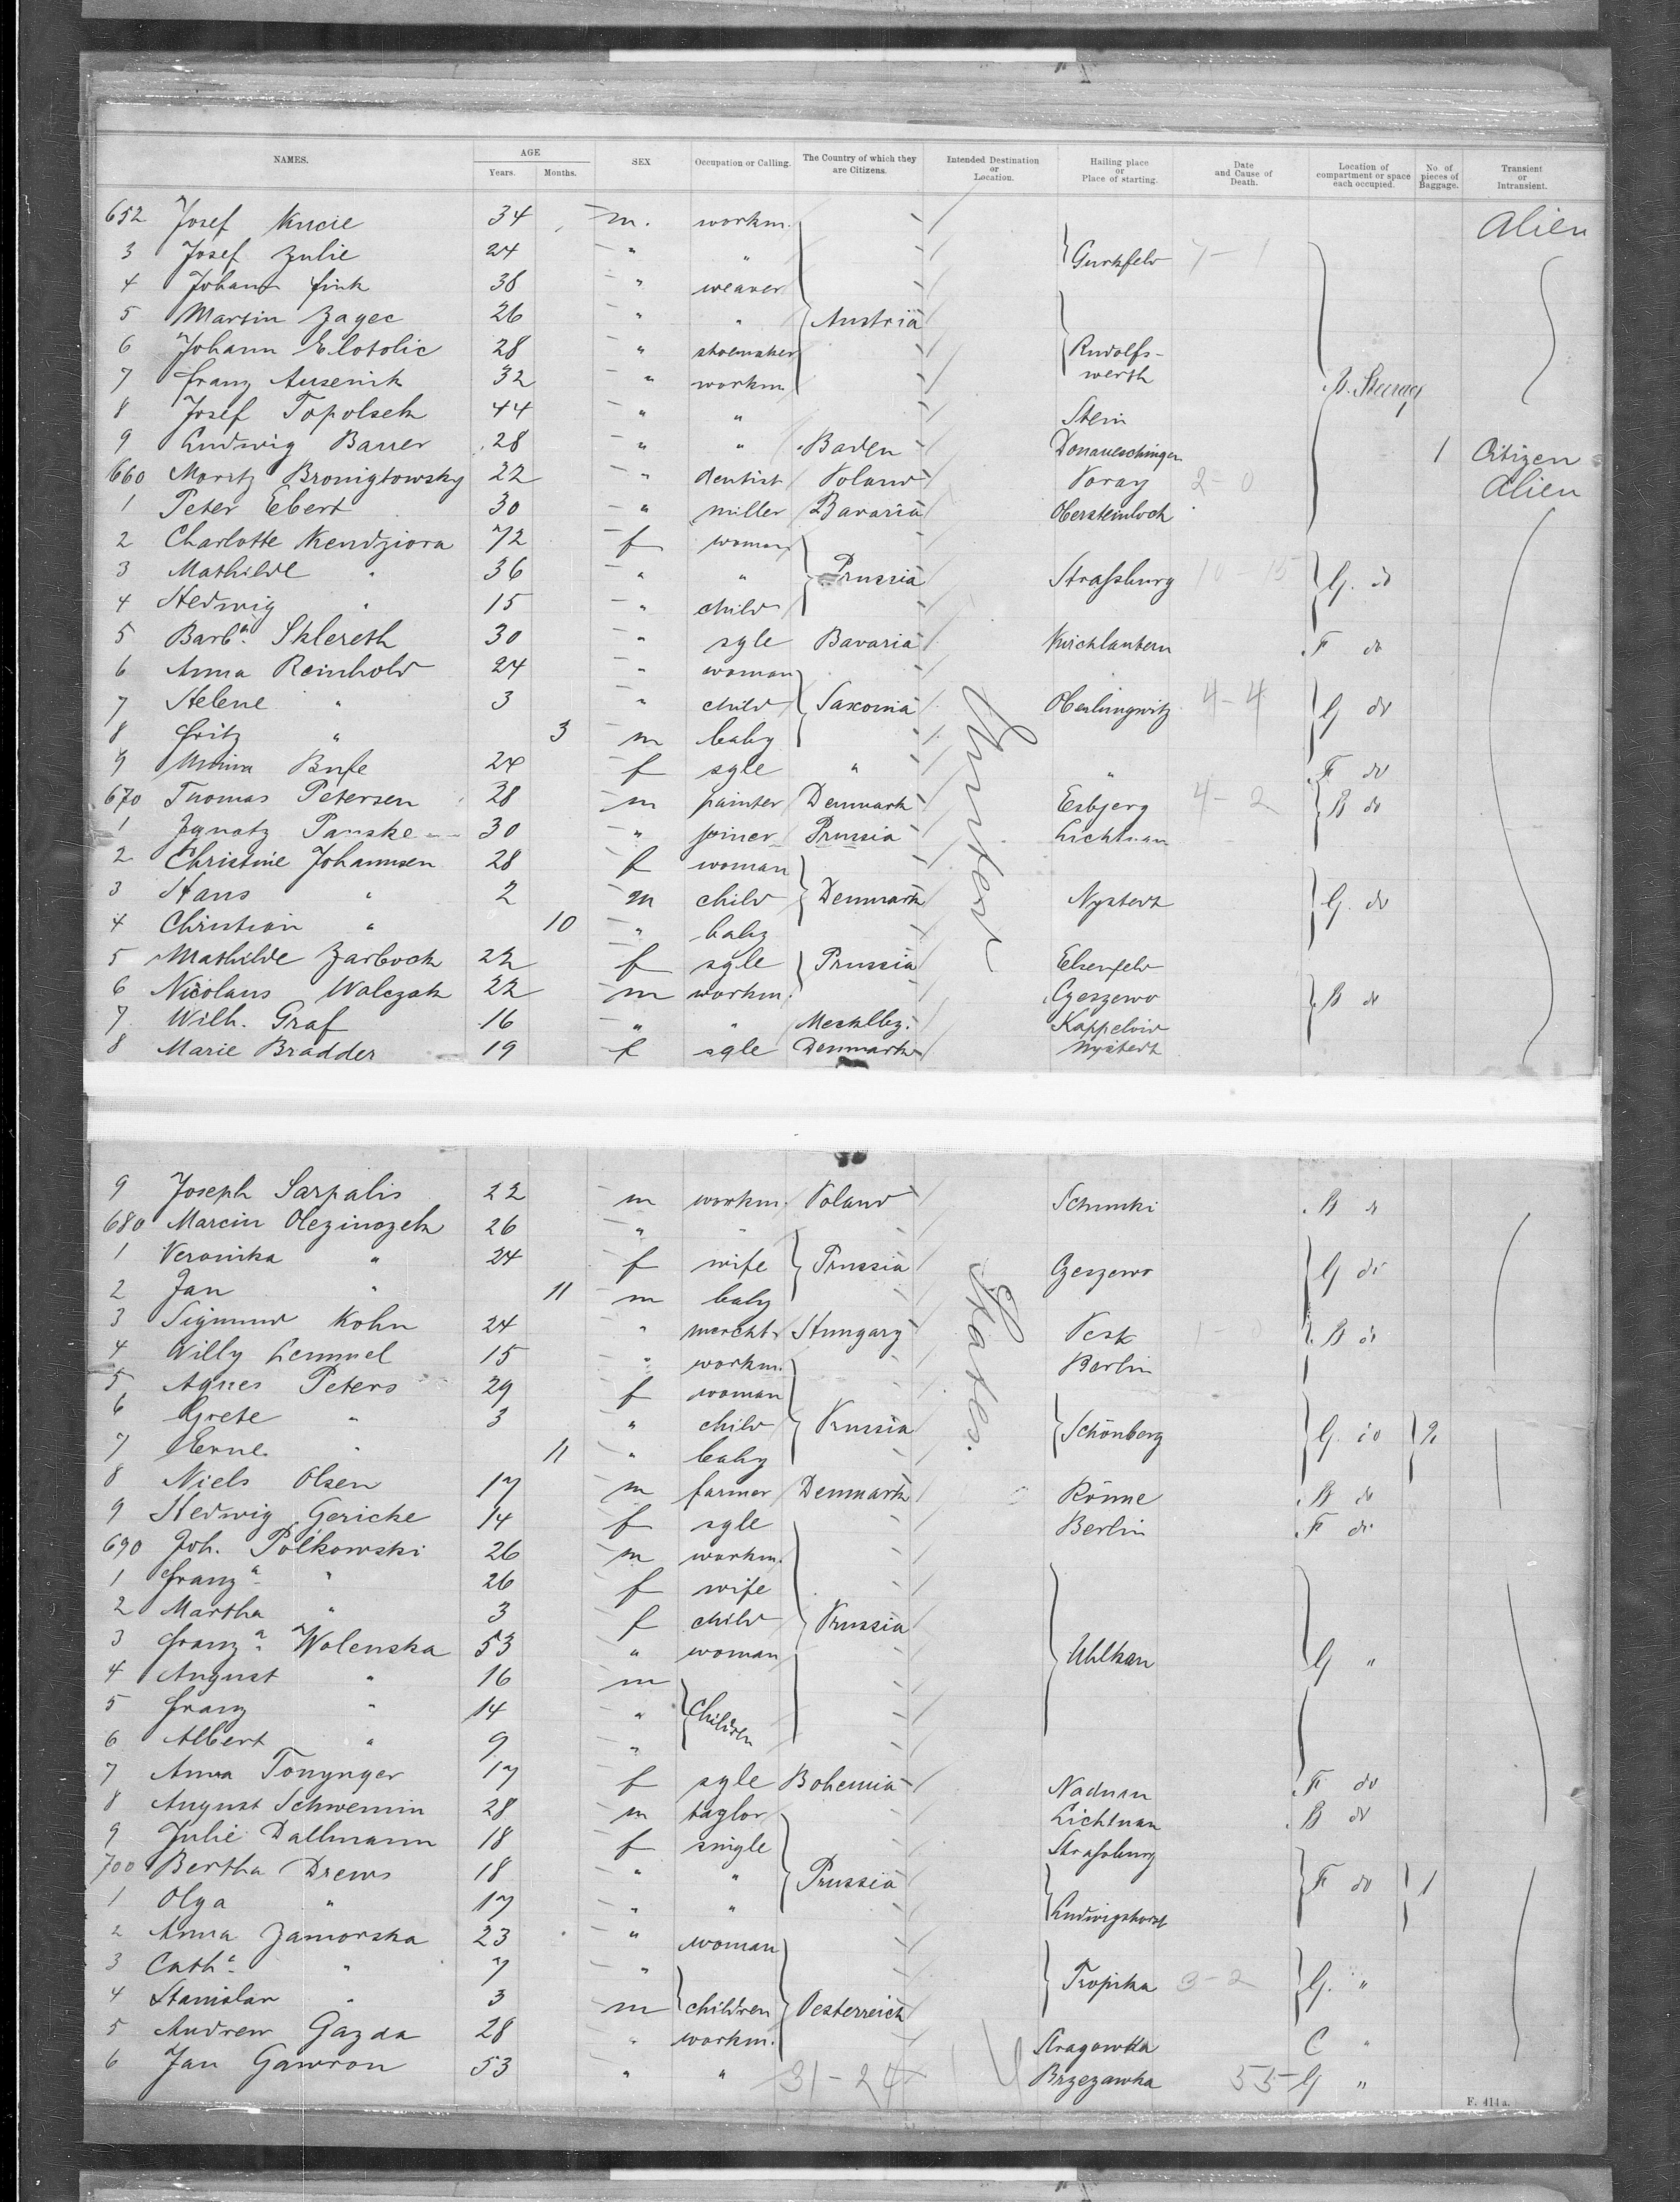 NAMES. AGE Years. Months. SEX Occupation or Calling. The Country of which they are Citizens. Intended Destination or Location. Hailing place or Place of starting. Date and Cause of Death. Location of compartment or space each occupied. No. of pieces of Baggage. Transient or Intransient.
652 Josef 34 m. workm. Alien
3 Josef Zulie 24 " " Gurkfeld 7-1
4 Johann Fink 38 " weaver
5 Martin Zagec 26 " " Austria
6 Johann 28 " shoemaker Rudolfs-
7 Franz Ausenik 32 " workm. werth
8 Josef Topolsek 44 " " Stein
9 Ludwig Bauer 28 " " Baden Donaueschingen 1 Citizen
660 Moritz Bronigtowsky 22 " dentist Poland 2-0 Alien
1 Peter Ebert 30 " miller Bavaria
2 Charlotte Kendziora 72 f woman
3 Mathilde " 36 " " Prussia Straßburg 10-15 G. do
4 Hedwig " 15 " child
5 Barbª. Sklereth 30 " sgle Bavaria F do
6 Anna Reinhold 24 " woman
7 Helene " 3 " child Saxonia 4-4 G do
8 Fritz " 3 m baby
9 Minna Bufe 24 f sgle " " F do
670 Thomas Petersen 28 m painter Denmark Esbjerg 4-2 B do
1 Ignatz Panske 30 " joiner Prussia Lichtnau
2 Christine Johannsen 28 f woman
3 Hans " 2 m child Denmark Nystedt G. do
4 Christian " 10 " baby
5 Mathilde Zarbock 22 f sgle Prussia Elsenfeld
6 Nicolaus Walczak 22 m workm. Czeszewo B do
7 Wilh. Graf 16 " " Mecklbg.
8 Marie Bradder 19 f sgle Denmark Nystedt
9 Joseph Sarpalis 22 m workm. Poland B do
680 Marcin 26 " "
1 Veronika " 24 f wife Prussia Czeszewo G do
2 Jan " 11 m baby
3 Sigmund Kohn 24 " mercht. Hungary Pest B do
4 Willy Lemmel 15 " workm. Berlin
5 Agnes Peters 29 f woman
6 Grete " 3 " child Prussia Schönberg G. do 2
7 Erne " 11 " baby
8 Niels Olsen 17 m farmer Denmark Rönne B do
9 Hedwig Gericke 14 f sgle Berlin F do
690 Joh. Polkowski 26 m workm.
1 Franzª. " 26 f wife
2 Martha " 3 f child Prussia
3 Franzª. Wolenska 53 " woman Uhlkau G "
4 August " 16 m
5 Franz " 14 " Children
6 Albert " 9 "
7 Anna Tonynger 17 f sgle Bohemia F do
8 August Schwemin 28 m taylor Lichtnau B do
9 Julie Dallmann 18 f single Straßburg
700 Bertha Drews 18 " " Prussia F do 1
1 Olga " 17 " " Ludwigshorst
2 Anna Zamorska 23 " woman
3 Cathª. " 7 " Tropika 3-2 G. "
4 Stanislav " 3 m children Oesterreich
5 Andrew Gazda 28 " workm. C "
6 Jan Gawron 53 " " 31-24 Brzezawka 55 G "
States.
F. 414 a.